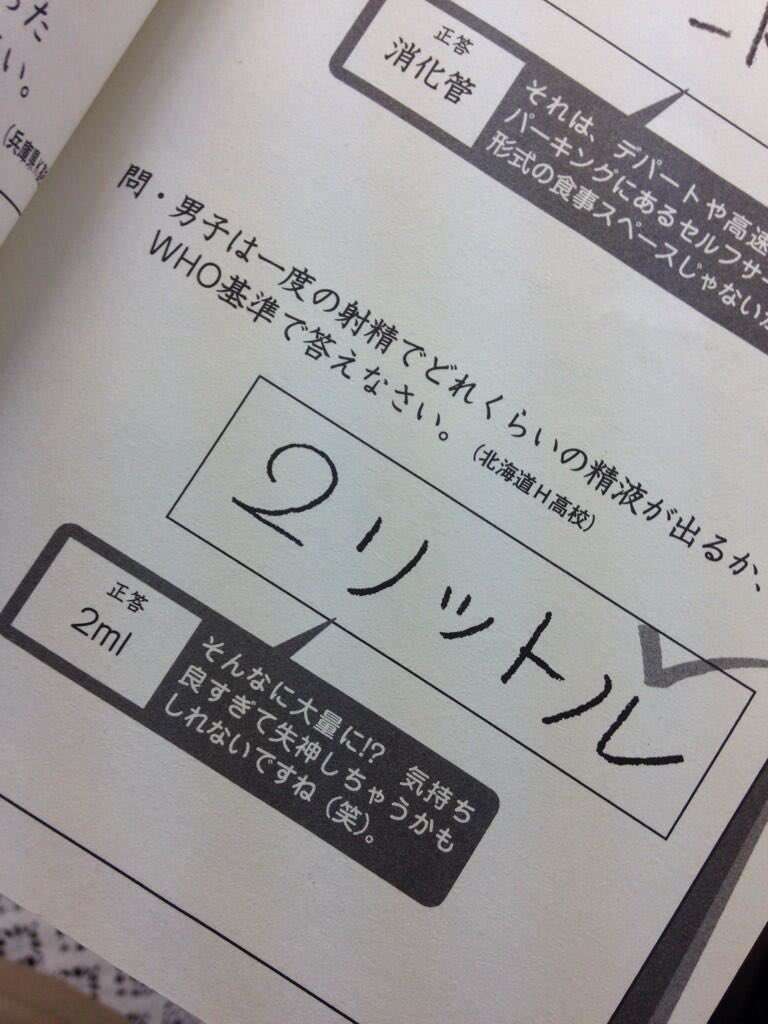 った
い。
(兵庫県
正答
消化管
それは、デパートや高速
パーキングにあるセルフサー
形式の食事スペースじゃないか
問・男子は一度の射精でどれくらいの精液が出るか、
WHO基準で答えなさい。
(北海道H高校)
2リットル
正答
2ml
そんなに大量に!? 気持ち
良すぎて失神しちゃうかも
しれないですね（笑）。